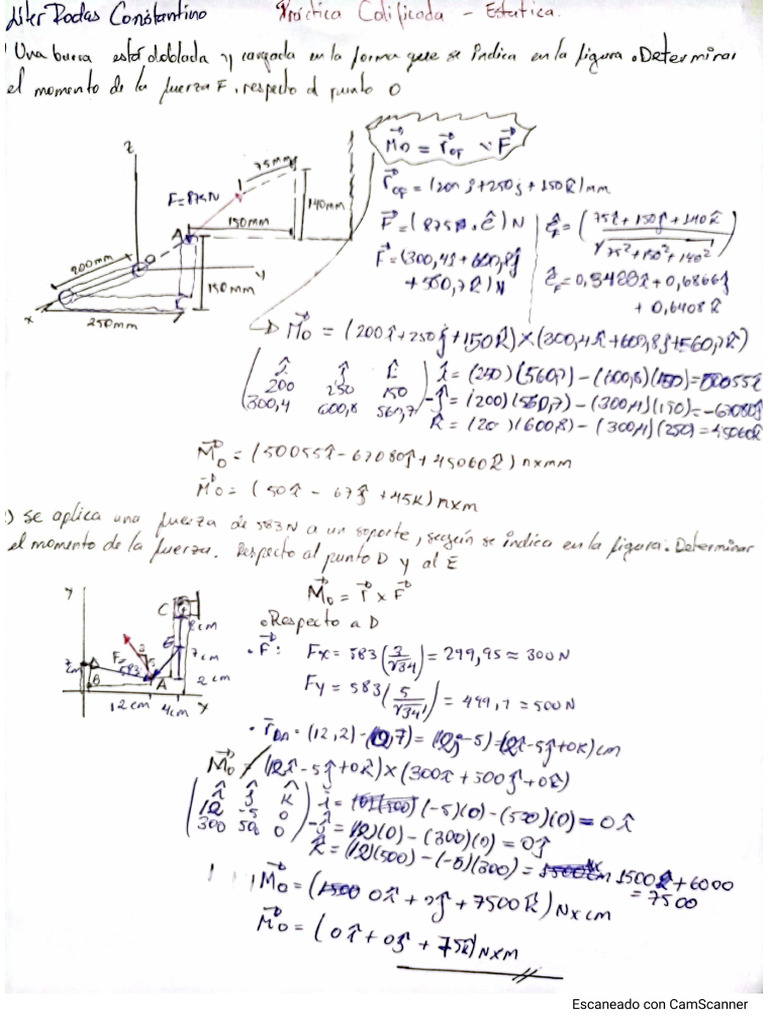 Liter Rodas Constantino Práctica Calificada - Estatica.
Una barra está doblada y cargada en la forma que se indica en la figura. Determinar
el momento de la fuerza F, respecto al punto O
z
F=875N
75mm
140mm
150mm
A
200mm
O
y
150mm
C
x
250mm
M⃗o = r⃗OF x F⃗
r⃗OF = (200î+250ĵ+150k̂)mm
F⃗=(875N.ê)N
F⃗=(300,4î+600,8ĵ
+560,7k̂)N
êF=(75î+150ĵ+140k̂ / √75²+150²+140²)
êF=0,3433î+0,6866ĵ
+0,6408k̂
M⃗o = (200î+250ĵ+150k̂)x(300,4î+600,8ĵ+560,7k̂)
î ĵ k̂
200 250 150
300,4 600,8 560,7
î = (250)(560,7)-(600,8)(150)=50055î
-ĵ= (200)(560,7)-(300,4)(150)=-67080ĵ
k̂ = (200)(600,8)-(300,4)(250)=45060k̂
M⃗o = (50055î-67080ĵ+45060k̂)nxmm
M⃗o= (50î - 67ĵ +45k)nxm
) se aplica una fuerza de 583N a un soporte, según se indica en la figura. Determinar
el momento de la fuerza. Respecto al punto D y al E
M⃗o = r⃗ x F⃗
Respecto a D
y
C
8cm
E
7cm
2cm
F=
583
3
5
D
B
A
12cm 4cm x
F⃗: Fx= 583(3/√34)= 299,95 ≈ 300N
Fy = 583(5/√34)= 499,9 ≈ 500N
r⃗DA = (12,2)-(0,7)=(12,-5)=(12î-5ĵ+0k)cm
M⃗o = (12î-5ĵ+0k̂)x(300î+500ĵ+0k̂)
î ĵ k̂
12 -5 0
300 500 0
î= (-5)(0)-(500)(0)=0î
-ĵ= (12)(0)-(300)(0)=0ĵ
k̂ = (12)(500)-(-5)(300)= 1500k̂+6000
= 7500
M⃗o=( 0î+0ĵ+7500k̂)Nxcm
M⃗o= (0î+0ĵ+75k̂)Nxm
Escaneado con CamScanner